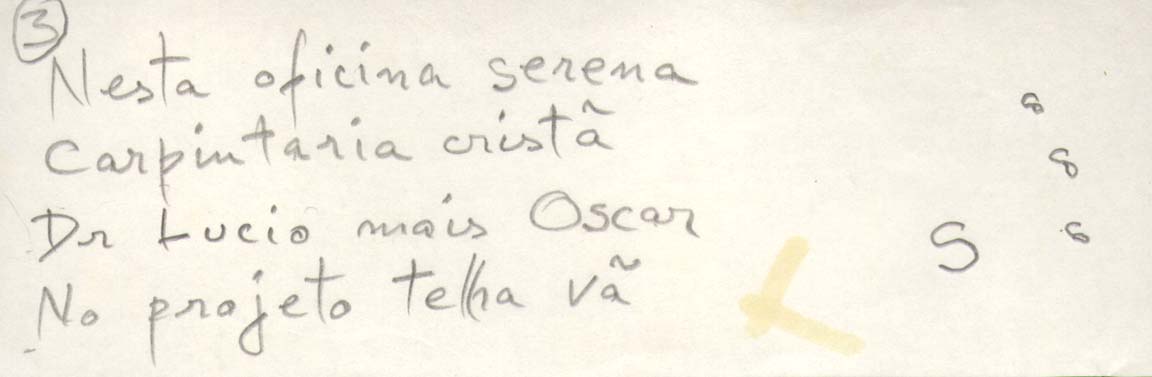 3
Nesta oficina serena
Carpintaria cristã
Dr Lucio mais Oscar
No projeto telha vã
8
8
S 8